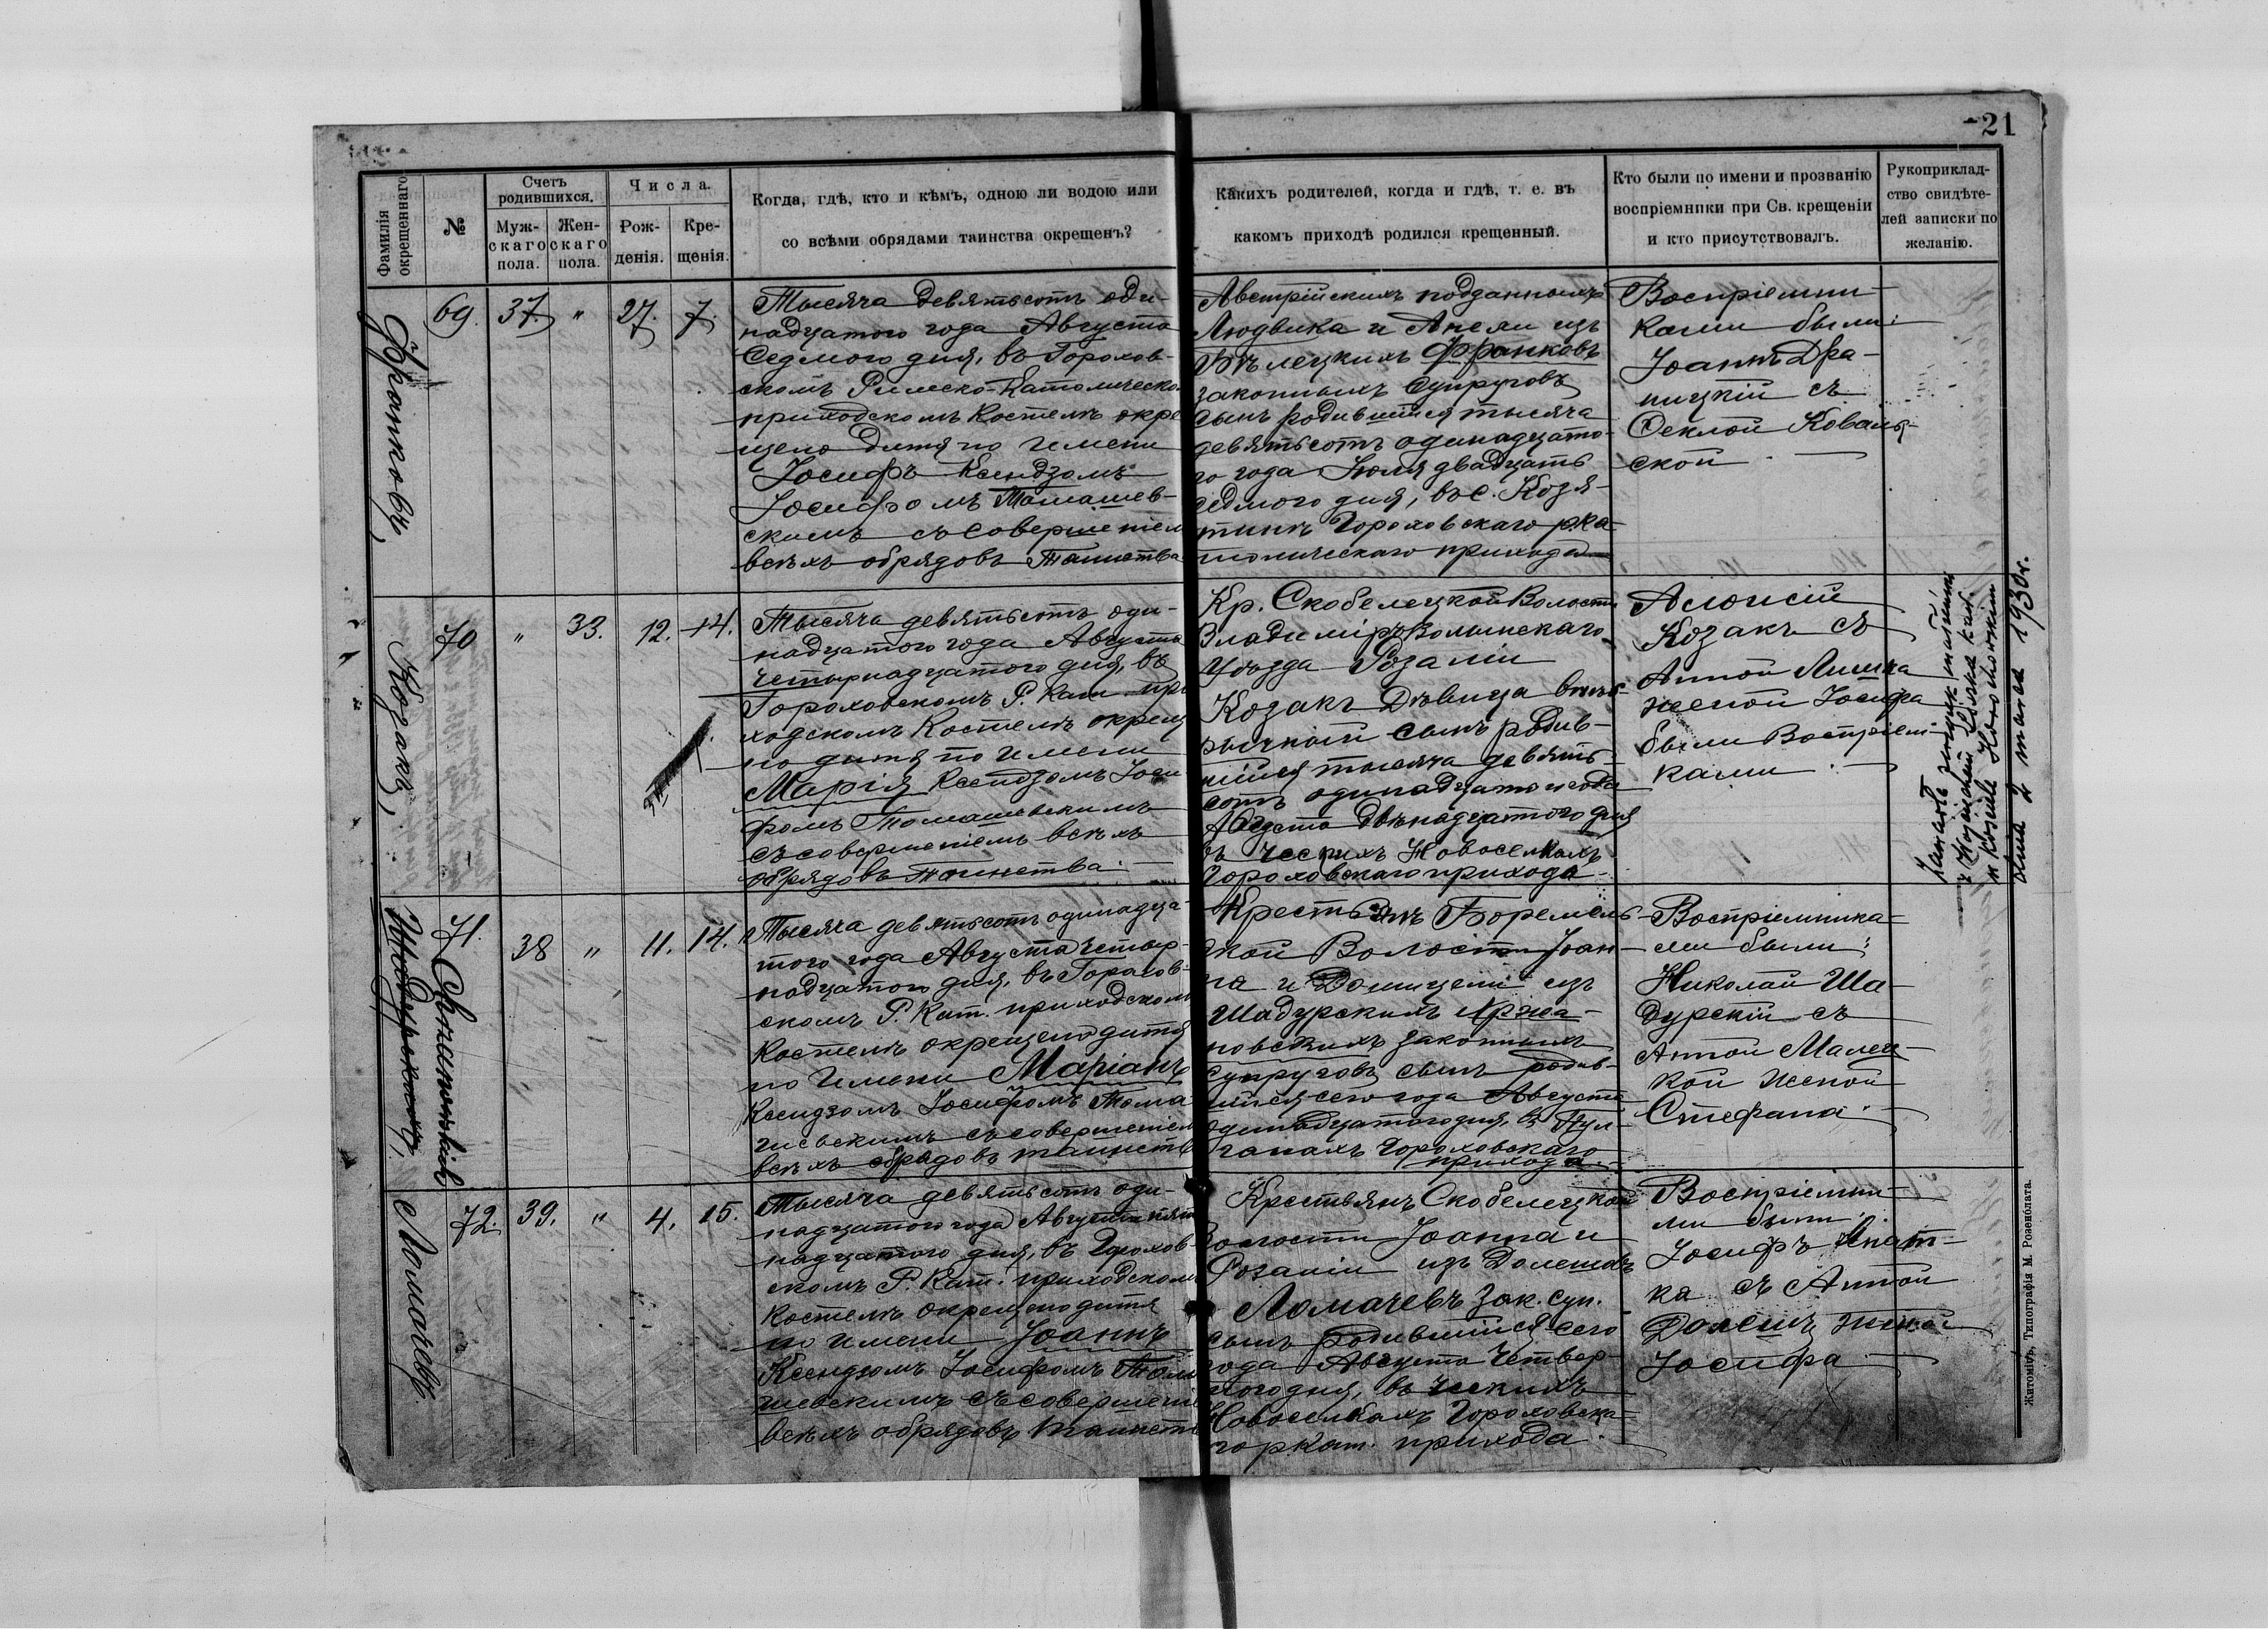 21
Фамилія окрещеннаго
№
Счетъ родившихся.
Муж-
скаго
пола.
Жен-
скаго
пола.
Числа.
Рож-
денія.
Кре-
щенія.
Когда, гдѣ, кто и кѣмъ, одною ли водою или
со всѣми обрядами таинства окрещенъ?
Какихъ родителей, когда и гдѣ, т. е. въ
какомъ приходѣ родился крещенный.
Кто были по имени и прозванію
воспріемники при Св. крещеніи
и кто присутствовалъ.
Рукоприклад-
ство свидѣте-
лей записки по
желанію.
Франковъ,
69.
37.
"
27.
7.
Тысяча девятьсотъ оди-
надцатого года Августа
Седмого дня, въ Горохов-
скомъ Римско-Католическо
приходскомъ Костелѣ окре
щено дитя по имени
Іосифъ Ксендзомъ
Іосифомъ Томашев-
скимъ съ совершеніем
всѣхъ обрядовъ Таинства
Австрійскихъ подданныхъ
Людвика и Анели изъ
Бѣлецкихъ Франковъ
законныхъ Супруговъ
сынъ родившійся тысяча
девятьсотъ одинадцато-
го года Іюля двадцать
седмого дня, въ с. Козя-
тинѣ Гороховскаго р.ка-
толическаго прихода
Воспріемни-
ками были:
Іоаннъ Дра-
ницкій съ
Феклой Коваль-
ской
Козакъ,
70
"
33.
12.
14.
Тысяча девятьсотъ оди-
надцатого года Августа
Четырнадцатого дня, въ
Гороховскомъ Р. Кат при
ходскомъ Костелѣ окрещ
но дитя по имени
Марія Ксендзомъ Іоси
фомъ Томашевскимъ
съ совершеніемъ всѣхъ
обрядовъ Таинства
Кр. Скобелецкой Волости
Владиміръ Волынскаго
Уѣзда Розаліи
Козакъ Дѣвица внѣб-
рачный сынъ родив-
шійся тысяча девять-
сотъ одинадцатого года
Августа двѣнадцатого дня
въ Ческихъ Новоселкахъ
Гороховскаго прихода
Алоисій
Козакъ съ
Анной Лишка
женой Іосифа
были Воспріем
ками
1930 r.
Шадурскій,
71.
38
"
11.
14.
Тысяча девятьсотъ одинадца-
того года Августа Четыр-
надцатого дня, въ Горохов-
скомъ Р. Кат. приходскомъ
Костелѣ окрещено дитя
по имени Маріанъ
Ксендзомъ Іосифомъ Тома
шевскимъ съ совершеніем
всѣхъ обрядовъ таинств
Крестьянъ Боремель-
ской Волости Іоан-
на и Доминеліи изъ
Шадурскихъ
законныхъ
Супруговъ сынъ родив-
шійся сего года Августа
одинадцатого дня, въ Пул-
ганахъ Гороховскаго
прихода.
Воспріемника-
ми были:
Николай Ша-
дурскій съ
Анной Малец-
кой женой
Стефана.
Ломачевъ.
72.
39.
"
4.
15.
Тысяча девятьсотъ оди-
надцатого года Августа пят
надцатого дня, въ Горохов-
скомъ Р. Кат. приходском
Костелѣ окрещено дитя
по имени Іоаннъ
Ксендзомъ Іосифомъ Тома
шевскимъ съ совершені
всѣхъ обрядовъ таинств
Крестьянъ Скобелецкой
Волости Іоанна и
Розаліи изъ Долешовъ
Ломачевъ зак. суп.
сынъ родившійся сего
года Августа Четвер-
того дня, въ Ческихъ
Новоселкахъ Гороховска-
го ркат. прихода.
Воспріемни-
ми были:
Іосифъ
ка съ Анной
Долешъ женой
Іосифа
Житоміръ, Типографія М. Розенблата.